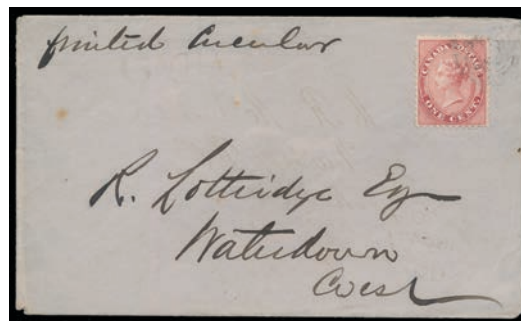 printed Circular
CANADA POSTAGE
ONE CENT
R. Lottridge Esq
Waterdown
West